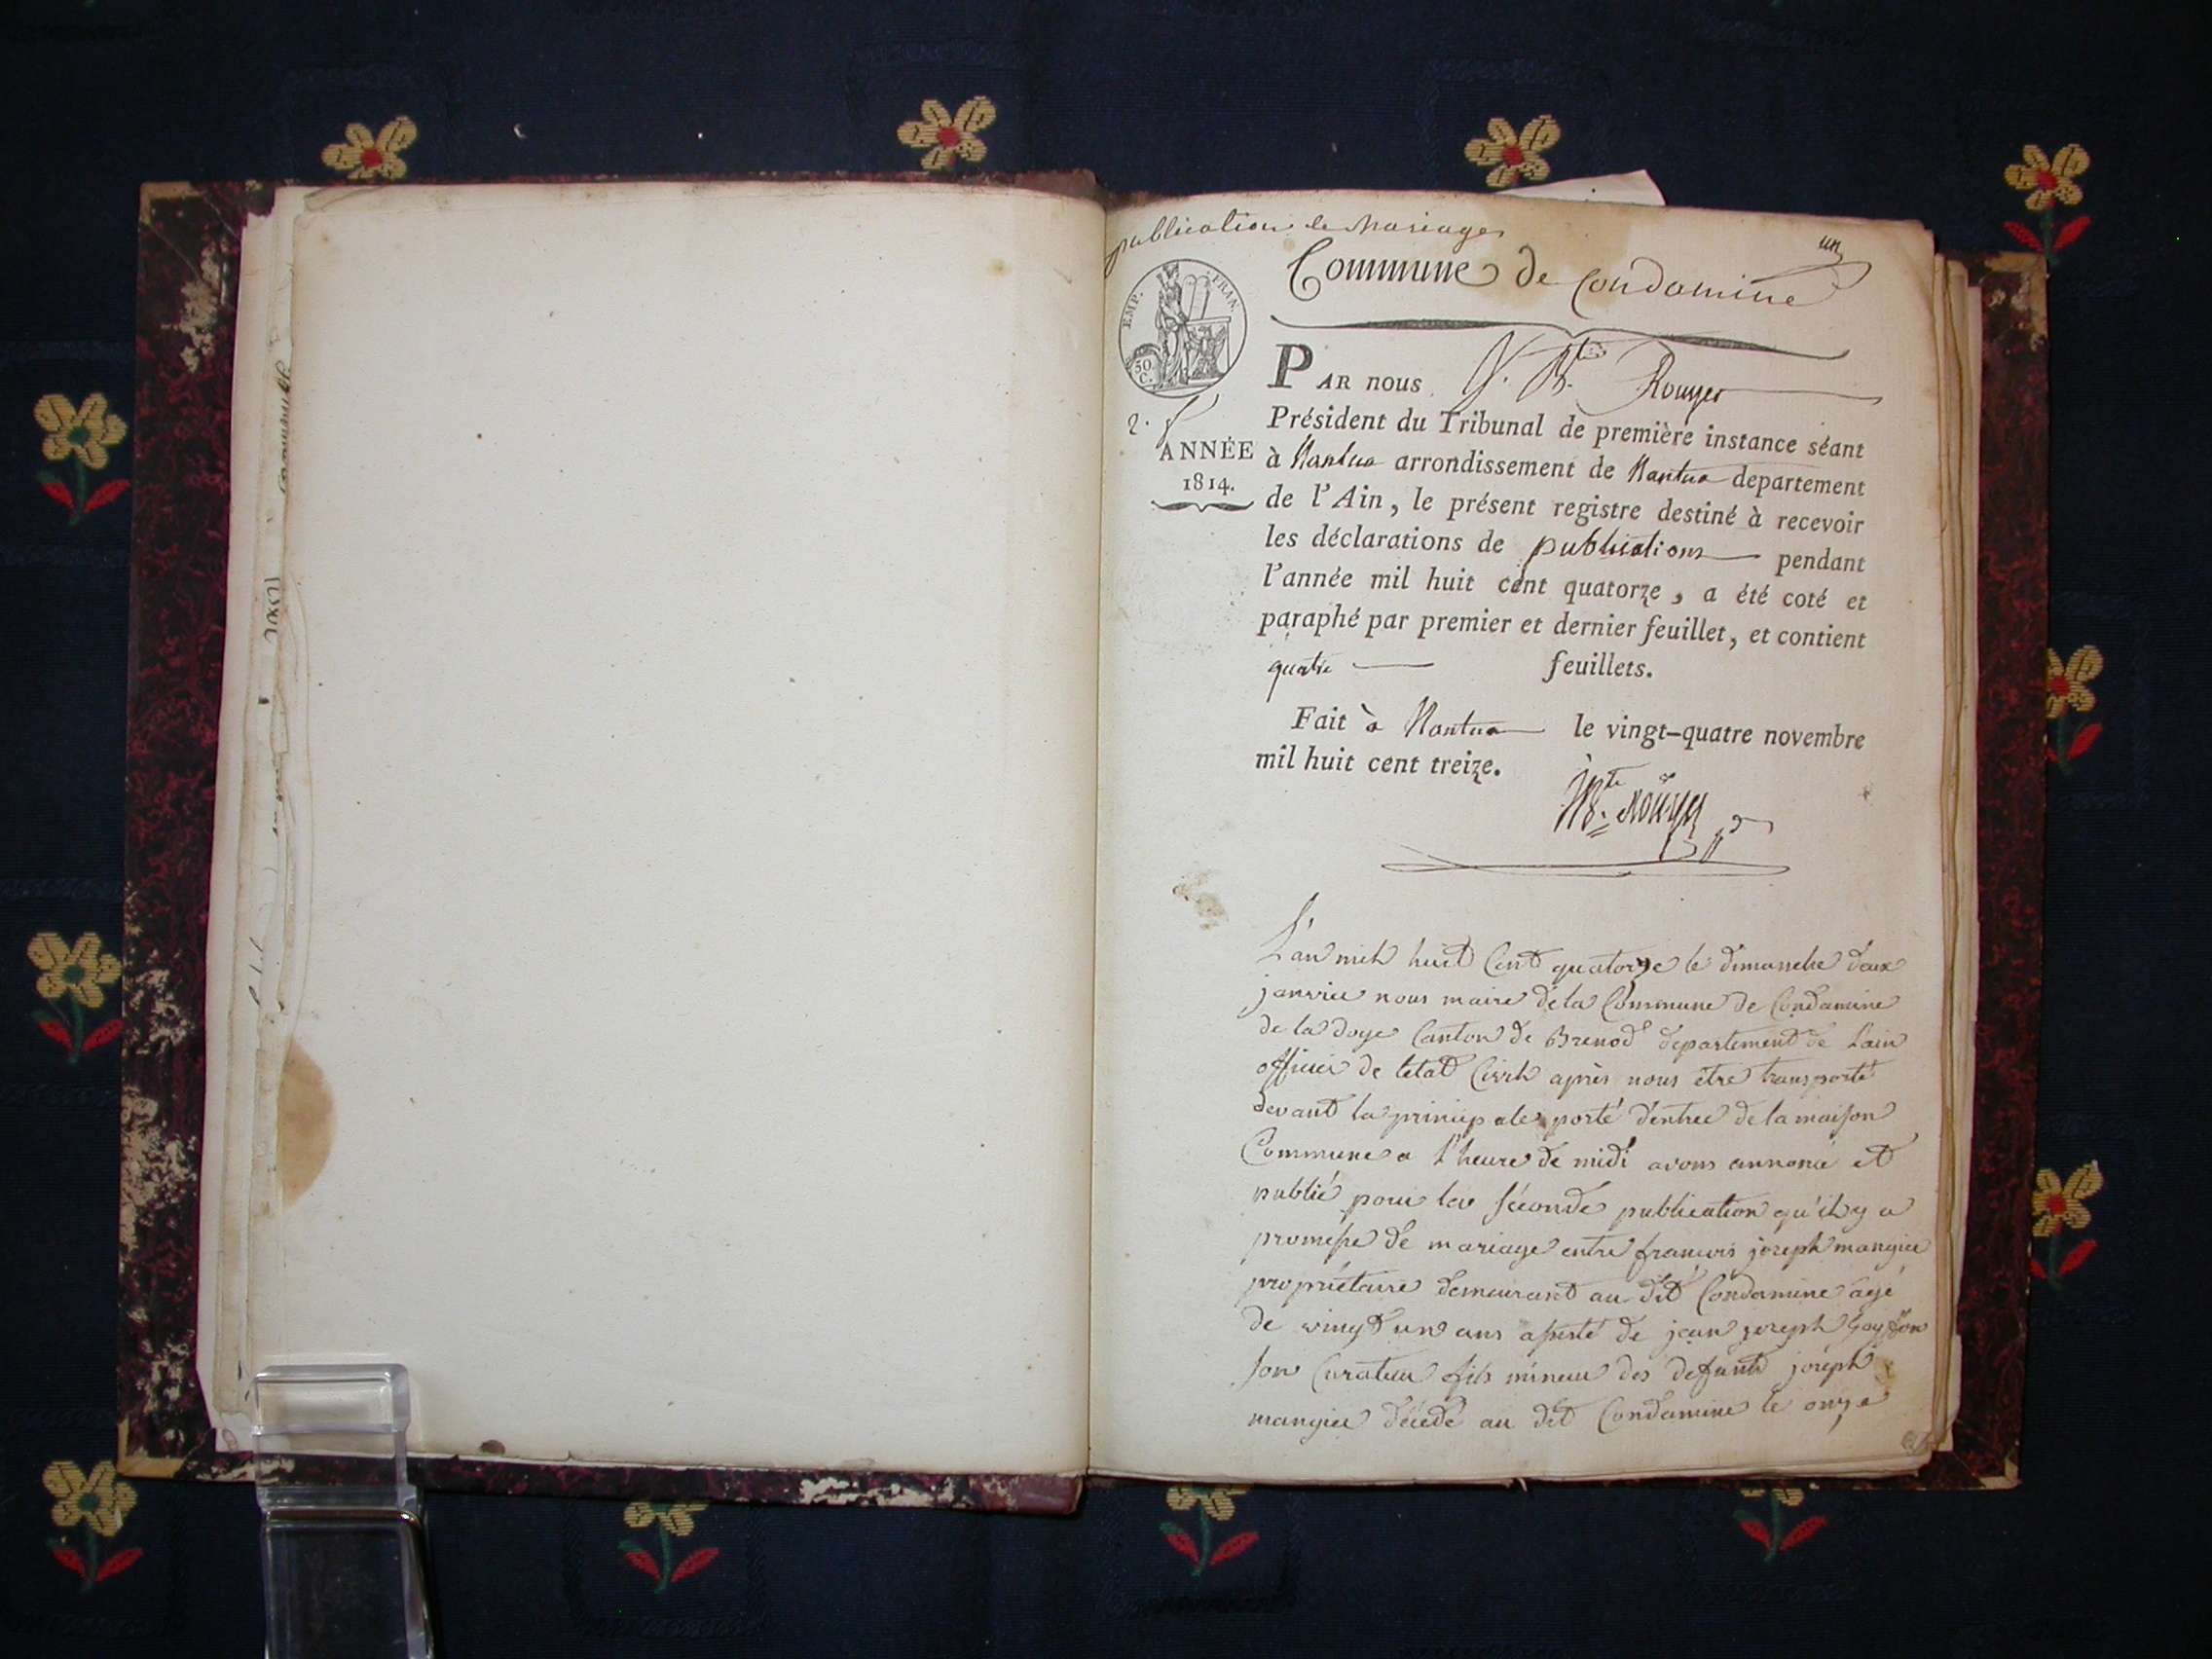 publication de Mariages
un
Commune de Condamine
EMP. FRAN.
50 C.
PAR nous J. Bte Rouyer
2.
Président du Tribunal de première instance séant
ANNÉE
1814.
à Nantua arrondissement de Nantua departement
de l'Ain, le présent registre destiné à recevoir
les déclarations de publications pendant
l'année mil huit cent quatorze, a été coté et
paraphé par premier et dernier feuillet, et contient
quatre feuillets.
Fait à Nantua le vingt-quatre novembre
mil huit cent treize.
JBte Rouyer
L'an mil huit Cent quatorze le dimanche deux
janvier nous maire de la Commune de Condamine
de la doye Canton de Brenod departement de Lain
officier de letat Civil après nous être transporté
devant la principale porté d'entrée de la maison
Commune a l'heure de midi avons annoncé et
publié pour la séconde publication qu'il y a
promesse de mariage entre francois joseph mangier
propriétaire demeurant au dit Condamine âgé
de vingt un ans assisté de jean joseph
son Curateur fils mineur des defunts joseph
mangier décédé au dit Condamine le onze